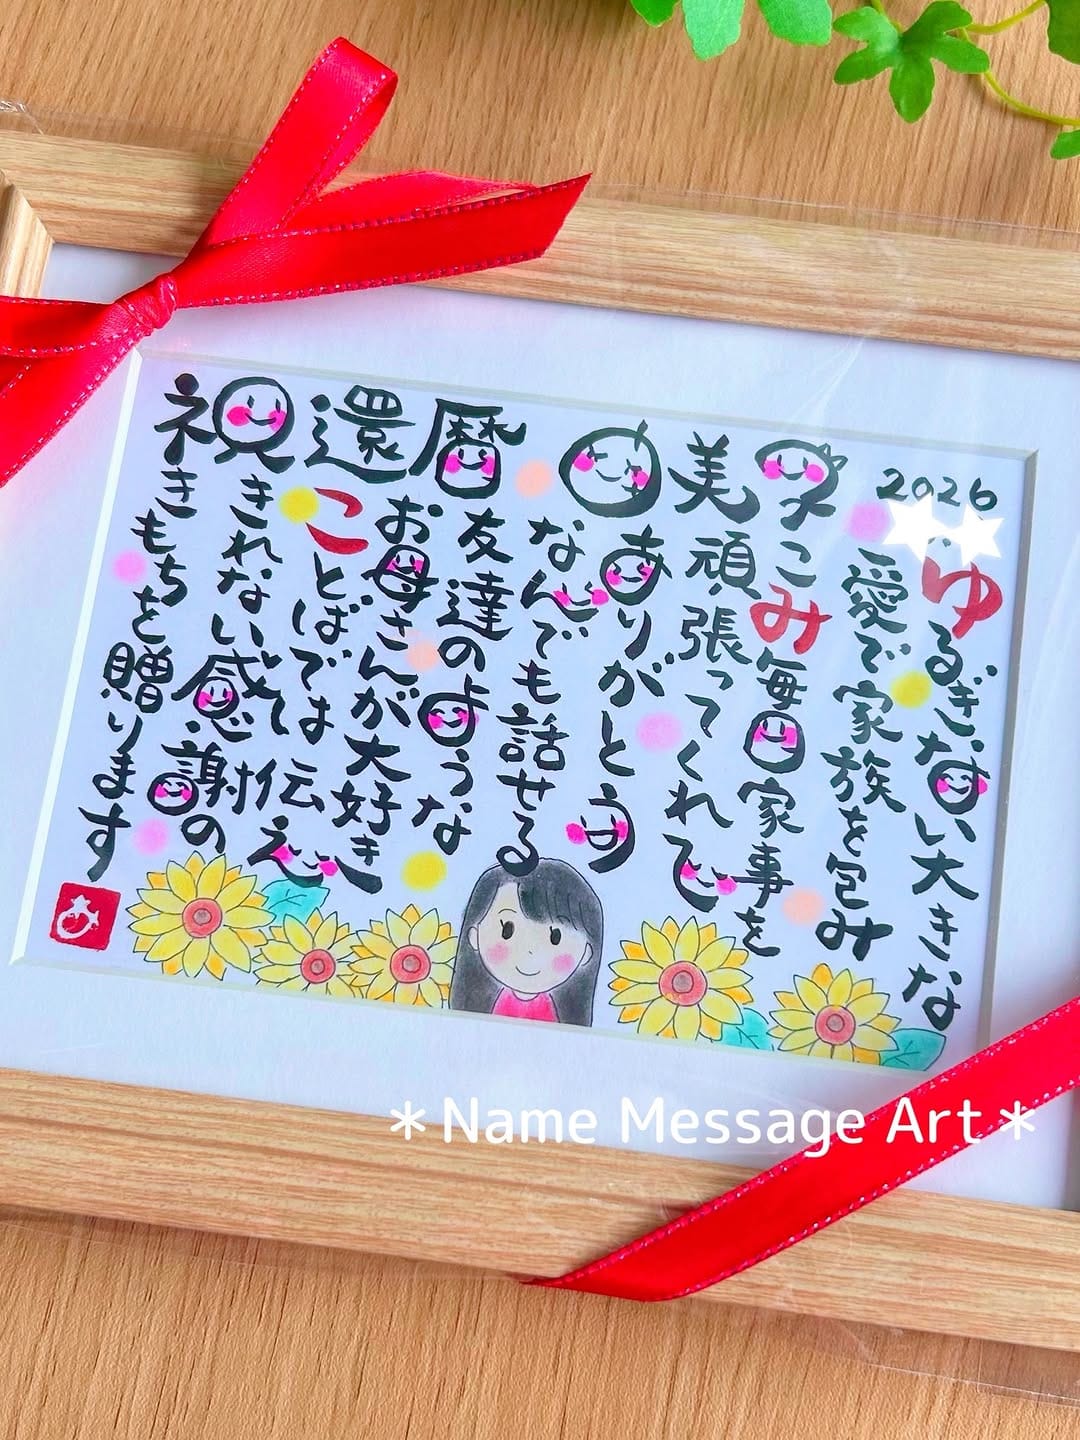 祝還暦 由美子
2026
ゆるぎない大きな
愛で家族を包み
こみ毎日家事を
頑張ってくれて
ありがとう
なんでも話せる
友達のような
お母さんが大好き
ことばでは伝え
きれない感謝の
きもちを贈ります
＊Name Message Art＊